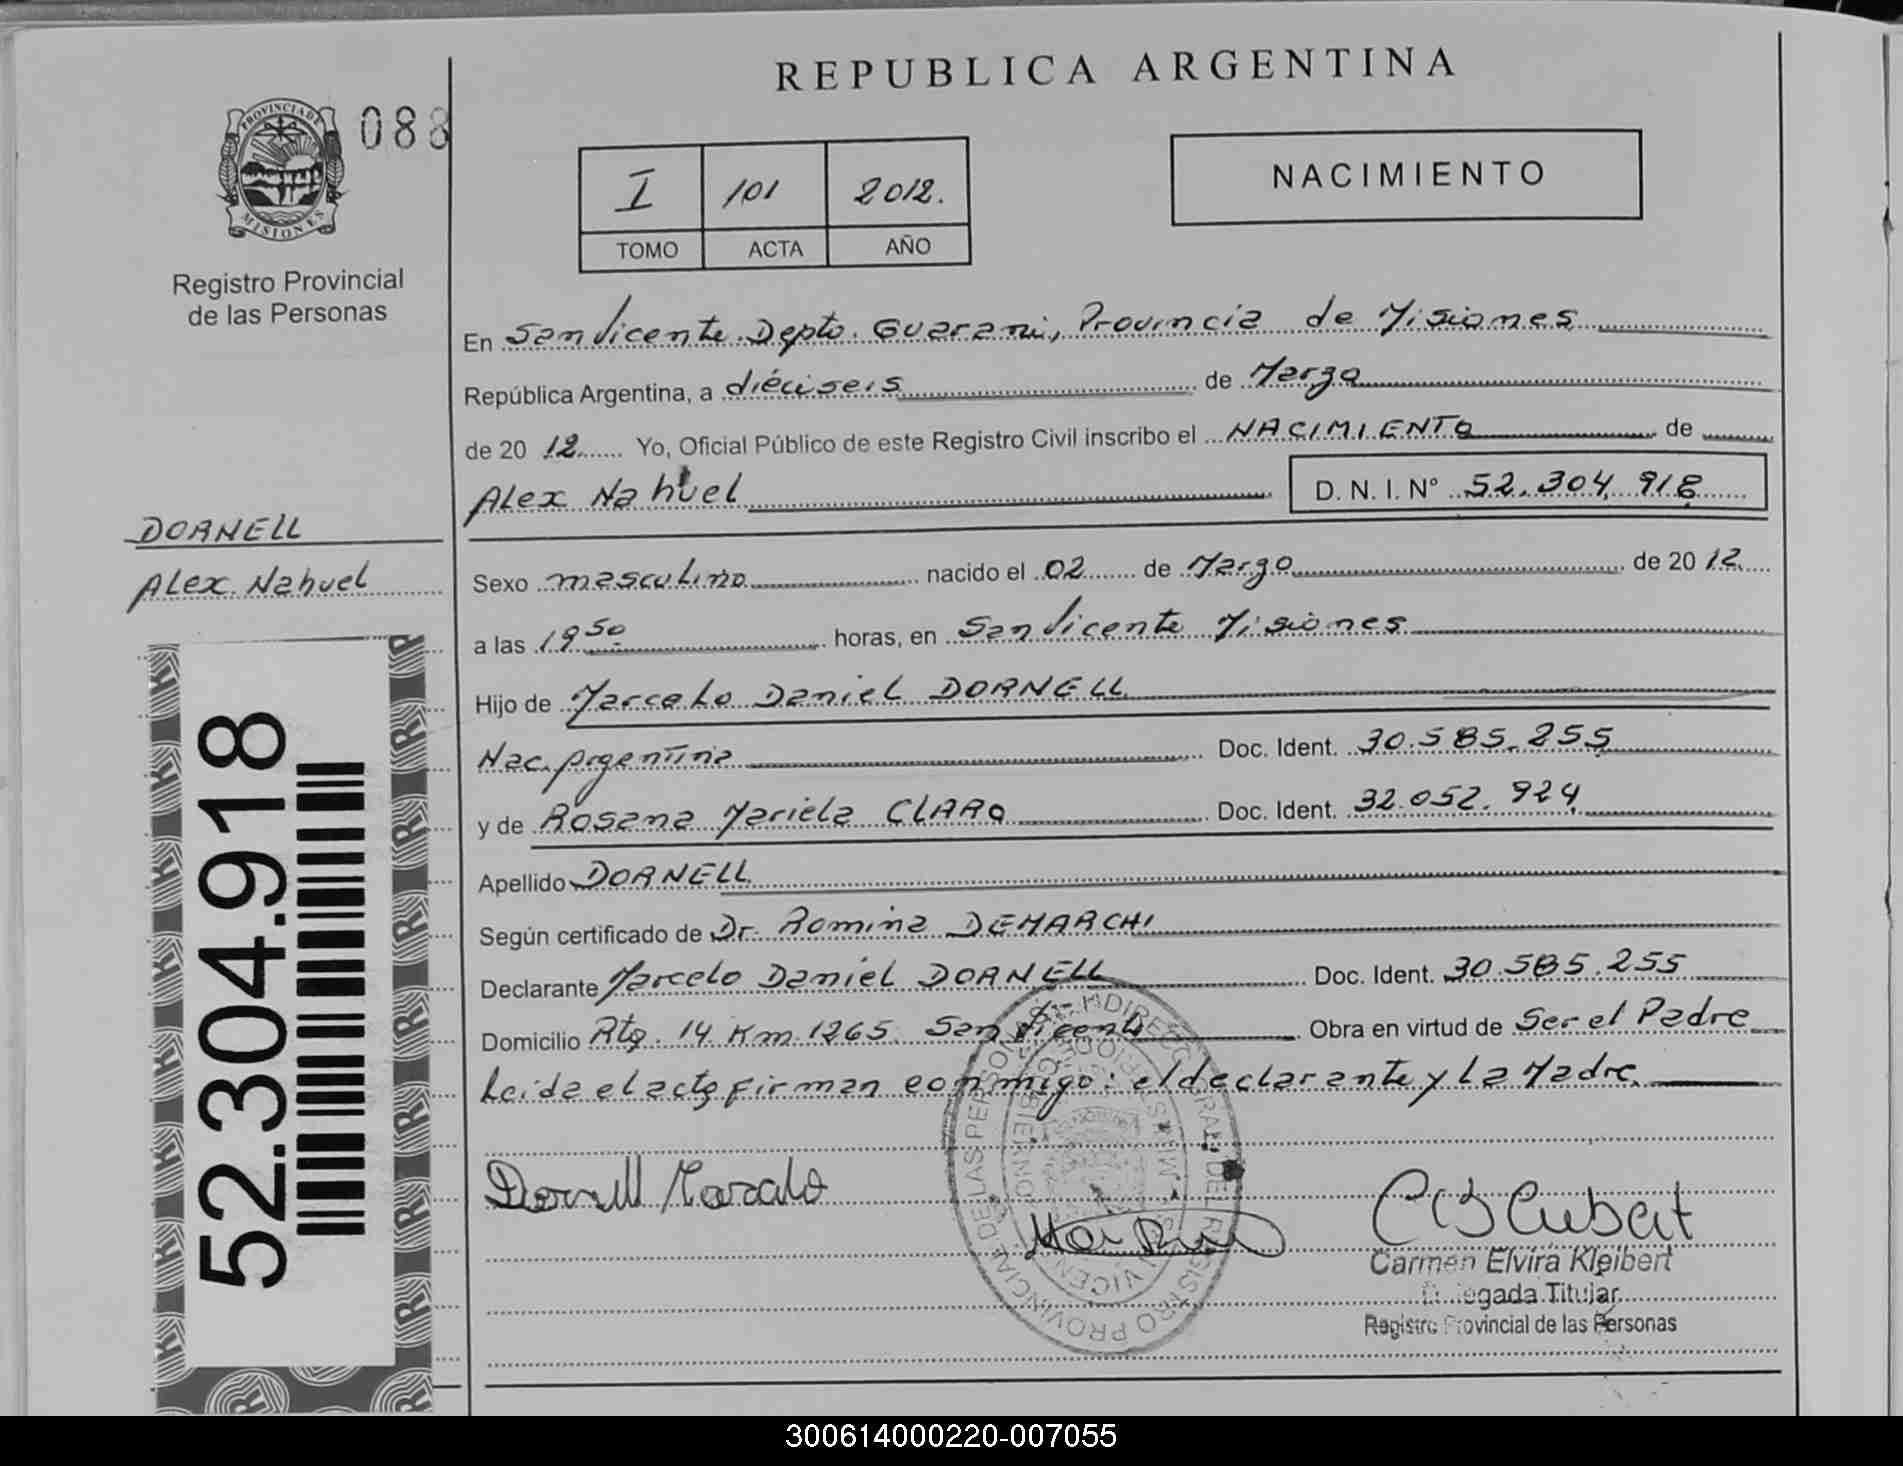 REPUBLICA ARGENTINA
PROVINCIA DE
MISIONES
088
Registro Provincial
de las Personas
I 101 2012.
TOMO ACTA AÑO
NACIMIENTO
En San Vicente Depto. Guarani, Provincia de Misiones
República Argentina, a diéciseis de Marzo
de 2012 Yo, Oficial Público de este Registro Civil inscribo el NACIMIENTO de
Alex Nahuel D. N. I. N° 52.304.918
DORNELL
Alex Nahuel
Sexo masculino nacido el 02 de Marzo de 2012
a las 19 50 horas, en San Vicente Misiones
Hijo de Marcelo Daniel DORNELL
Nac. Argentina Doc. Ident. 30.585.255
y de Rosana Mariela CLARO Doc. Ident. 32.052.924
Apellido DORNELL
Según certificado de Dr. Romina DEMARCHI
Declarante Marcelo Daniel DORNELL Doc. Ident. 30.585.255
Domicilio Rta. 14 Km 1265 San Vicente Obra en virtud de Ser el Padre
Leida el acta firman conmigo: el declarante y La Madre
52.304.918
Dornell Marcelo
Carmen Elvira Kleibert
Delegada Titular
Registro Provincial de las Personas
300614000220-007055